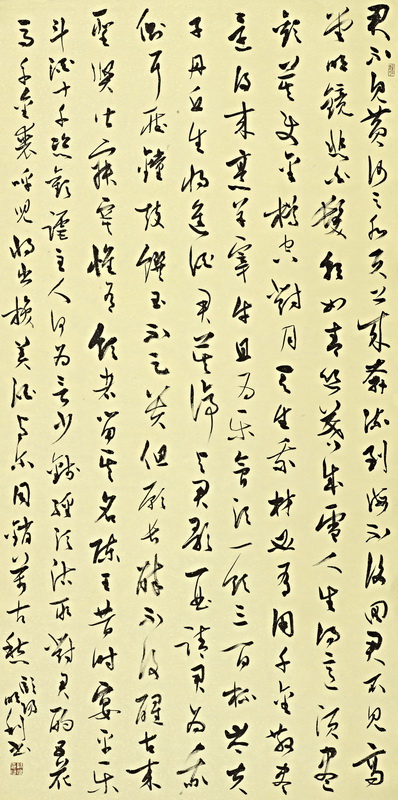 君不見黃河之水天上來奔流到海不復回君不見高
堂明鏡悲白髮朝如青絲暮成雪人生得意須盡
歡莫使金樽空對月天生我材必有用千金散盡
還復來烹羊宰牛且為樂會須一飲三百杯岑夫
子丹丘生將進酒君莫停與君歌一曲請君為我
側耳聽鐘鼓饌玉不足貴但願長醉不復醒古來
聖賢皆寂寞惟有飲者留其名陳王昔時宴平樂
斗酒十千恣歡謔主人何為言少錢徑須沽取對君酌五花
馬千金裘呼兒將出換美酒與爾同銷萬古愁